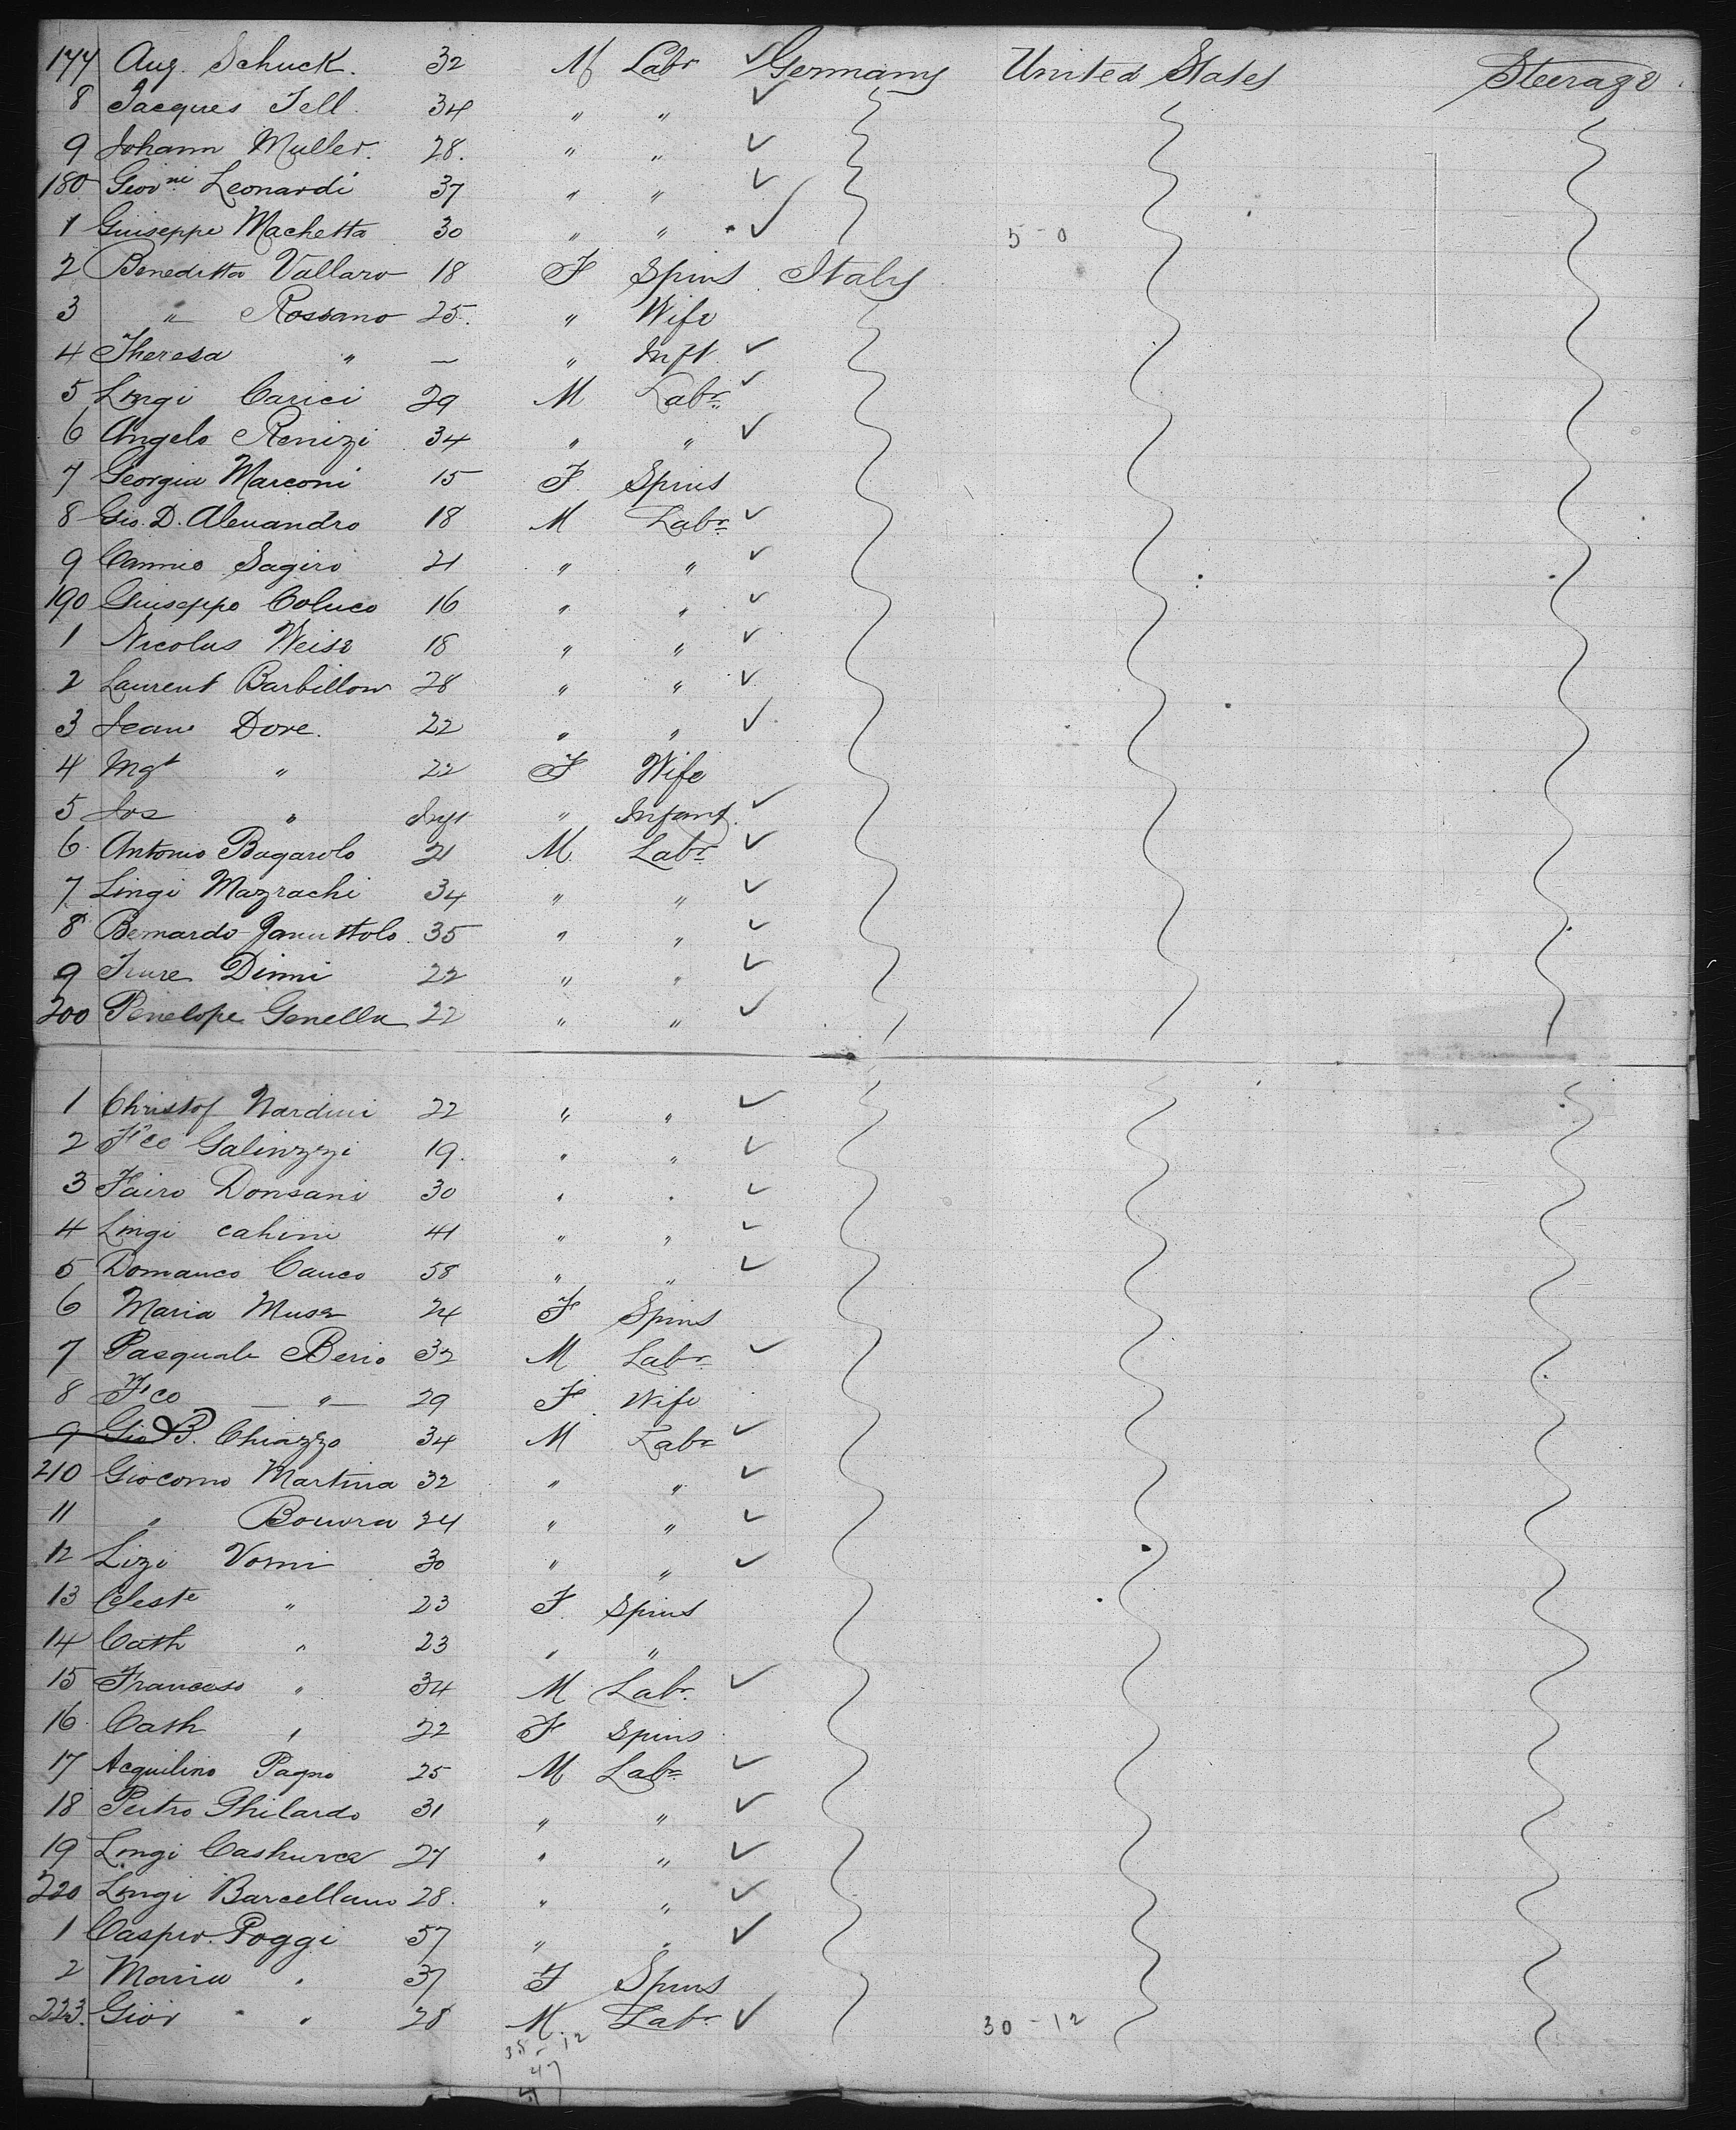 177 Aug. Schuck. 32 M Labr ✓ Germany United States Steerage
8 Jacques Tell. 34 " " ✓
9 Johann Muller. 28. " " ✓
180 Giovni Leonardi 37 " " ✓
1 Guiseppe Machetta 30 " " ✓ 5-0
2 Beneditta Vallaro 18 F Spins Italy
3 " Rossano 25. " Wife
4 Theresa " — " Inft ✓
5 Lingi Carici 29 M Labr ✓
6 Angelo Renizi 34 " " ✓
7 Georgia Marconi 15 F. Spins
8 Gio. D. Alexandro 18 M Labr ✓
9 Cannio Sagiro 21 " " ✓
190 Guiseppo Coluco 16 " " ✓
1 Nicolus Weise 18 " " ✓
2 Laurent Barbillon 28 " " ✓
3 Jean Dore. 22 " " ✓
4 Mgt " 22 F Wife
5 Jos " " Infant. ✓
6 Antonio Bagarolo 21 M Labr ✓
7 Lingi Mazrachi 34 " " ✓
8 Bernardo 35 " " ✓
9 Dinni 22 " " ✓
200 Penelope Genella 22 " " ✓
1 Christof Nardini 22 " " ✓
2 Fco Galinzzi 19. " " ✓
3 Fairo Donsani 30 " " ✓
4 Lingi Cahini 41 " " ✓
5 Domanco Cauco 58 " " ✓
6 Maria Musa 24 F Spins
7 Pasquale Berio 32 M Labr ✓
8 Fco — " — 29 F Wife
9 Gio B. Chiazzo 34 M Labr ✓
210 Giocomo Martina 32 " " ✓
11 " Bouvra 24 " " ✓
12 Lizi Vorni 30 " " ✓
13 Celeste " 23 F. Spins
14 Cath " 23 " "
15 Franceso " 34 M Labr. ✓
16 Cath " 22 F Spins
17 Acquilino Pagno 25 M Labr ✓
18 Peitro Ghilardo 31 " " ✓
19 Longi Cashurca 27 " " ✓
220 Lingi Barcellano 28. " " ✓
1 Caspro. Poggi 57 " " ✓
2 Maria " 37 F Spins
223. Giov " 28 M. Labr ✓ 30-12
35-12
47